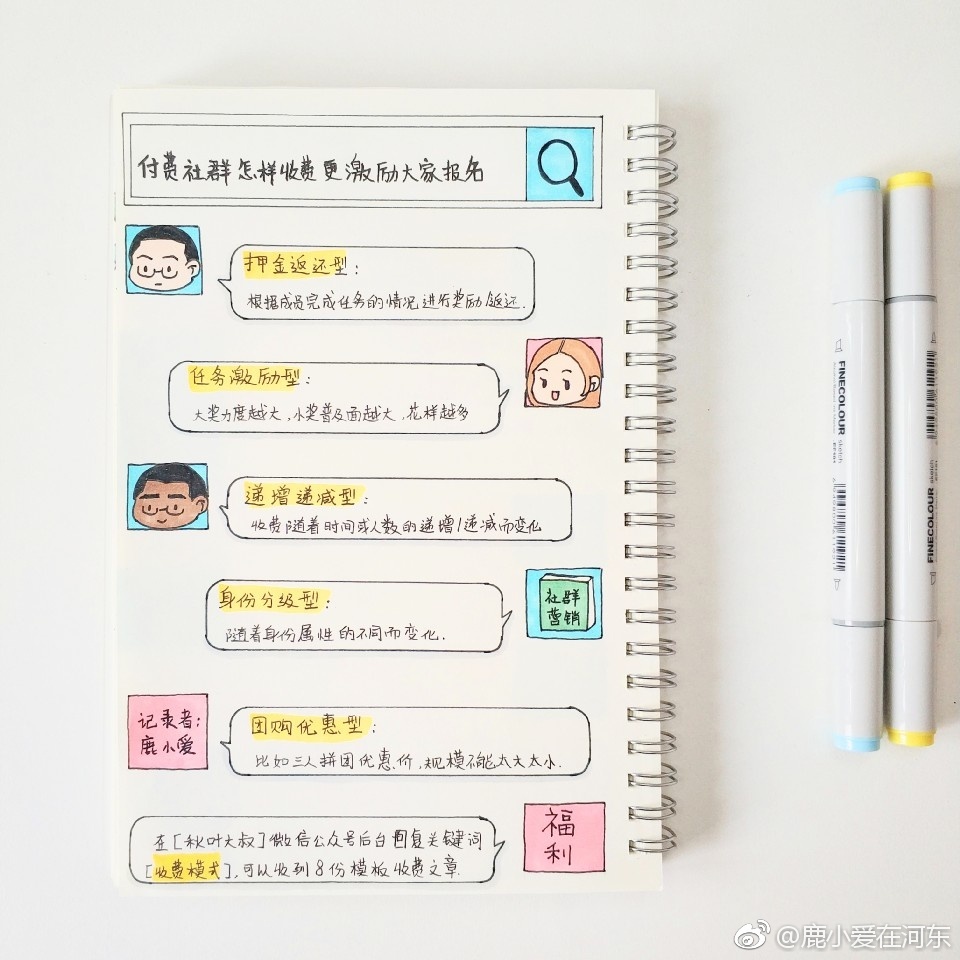 付费社群怎样收费更激励大家报名
押金返还型：
根据成员完成任务的情况进行奖励饭还.
任务激励型：
大奖力度越大,小奖普及面越大,花样越多
递增递减型：
收费随着时间或人数的递增/递减而变化
身份分级型：
随着身份属性的不同而变化.
社群
营销
记录者:
鹿小爱
团购优惠型：
比如三人拼团优惠价,规模不能太大太小.
在[秋叶大叔]微信公众号后台回复关键词
[收费模式],可以收到8份模板收费文章.
福
利
FINECOLOUR sketch
FINECOLOUR sketch
@鹿小爱在河东